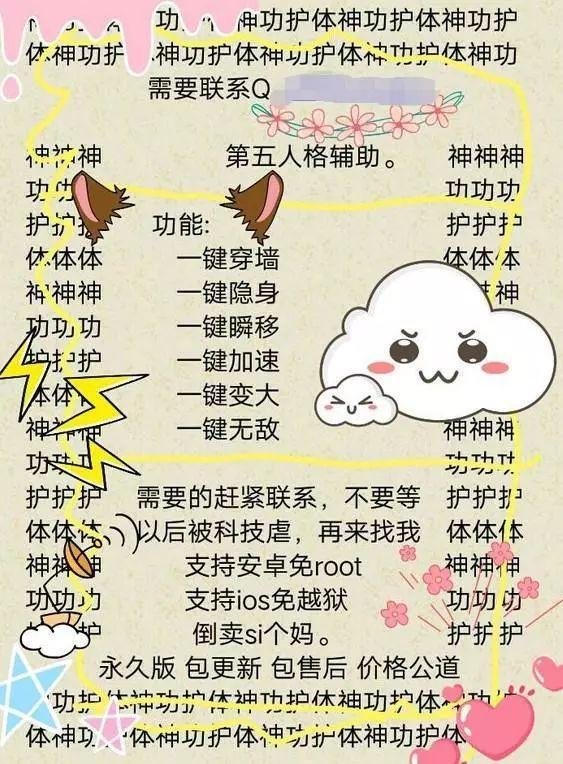 功护体神功护体神功护体神功护
体神功护体神功护体神功护体神功护体神功
需要联系Q
神神神 第五人格辅助。 神神神
功功功 功功功
护护护 功能: 护护护
体体体 一键穿墙 体体体
神神神 一键隐身 神神
功功功 一键瞬移
护护护 一键加速
体体体 一键变大
神神神 一键无敌 神神神
功功功 功功功
护护护 需要的赶紧联系，不要等 护护护
体体体 以后被科技虐，再来找我 体体体
神神神 支持安卓免root 神神神
功功功 支持ios免越狱 功功功
护护 倒卖si个妈。 护护护
永久版 包更新 包售后 价格公道
功护体神功护体神功护体神功护体神功护
体神功护体神功护体神功护体神功护体